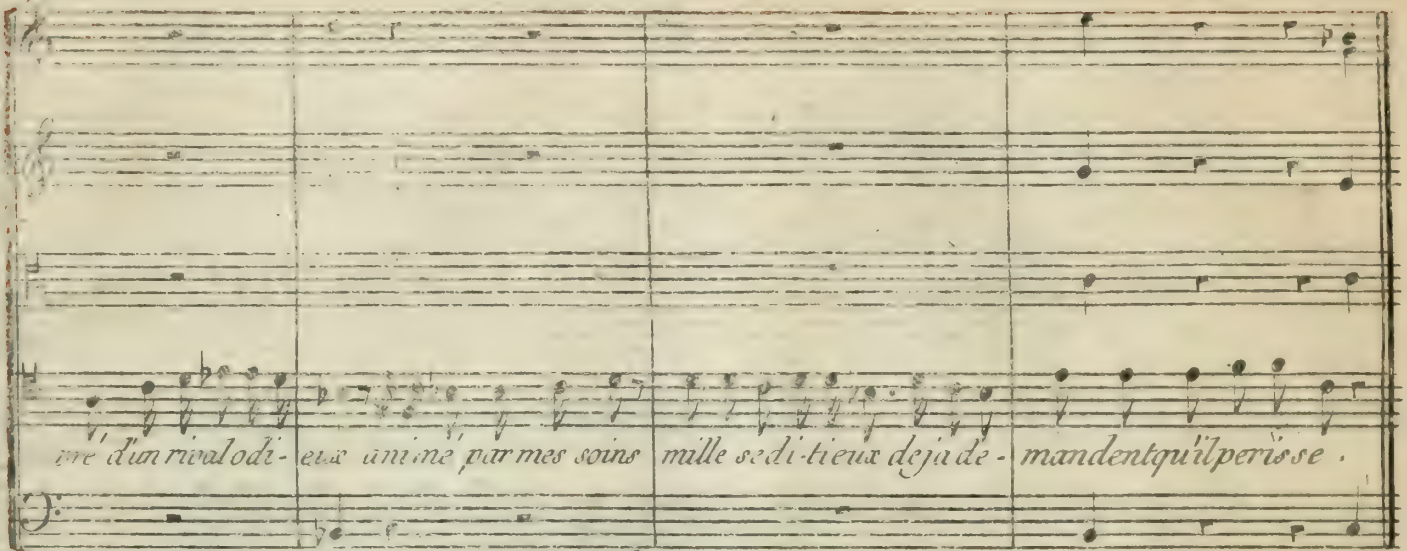 vré d'un rival odi-eux animé par mes soins mille sedi-tieux deja de-mandent qu'il perisse.